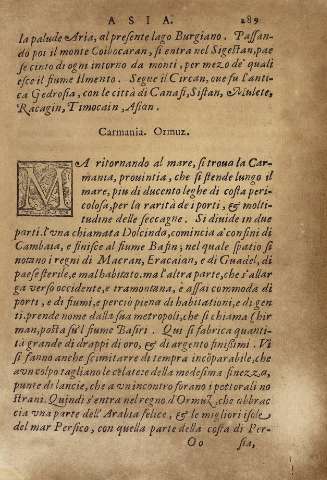 ASIA. 289
la palude Aria, al presente lago Burgiano. Passan-
do poi il monte Coibocaran, si entra nel Sigestan, pae
se cinto di ogni intorno da monti, per mezo de' quali
esce il fiume Ilmento. Segue il Circan, oue fu l'anti-
ca Gedrosia, con le città di Canasi, Sistan, Mulete,
Racagin, Timocain, Asian.
Carmania. Ormuz.
MA ritornando al mare, si troua la Car-
mania, prouintia, che si stende lungo il
mare, piu di ducento leghe di costa peri-
colosa, per la rarità de i porti, & molti-
tudine delle seccagne. Si diuide in due
parti. l'vna chiamata Dolcinda, comincia a' confini di
Cambaia, e finisce al fiume Basin; nel quale spatio si
notano i regni di Macran, Eracaian, e di Guadel, di
paese sterile, e mal habitato. ma l'altra parte, che s'allar
ga verso occidente, e tramontana, e assai commoda di
porti, e di fiumi, e perciò piena di habitationi, e di gen
ti. prende nome dalla sua metropoli, che si chiama Chir
man, posta sù'l fiume Basiri. Qui si fabrica quanti-
tà grande di drappi di oro, & di argento finissimi. Vi
si fanno anche scimitarre di tempra incōparabile, che
a un colpo tagliano le celatecze della medesima finezza,
punte di lancie, che a un incontro forano i pettorali no
strani. Quindi s'entra nel regno d'Ormuz, che abbrac
cia vna parte dell' Arabia felice, & le migliori isole
del mar Persico, con quella parte della costa di Per-
Oo sia,